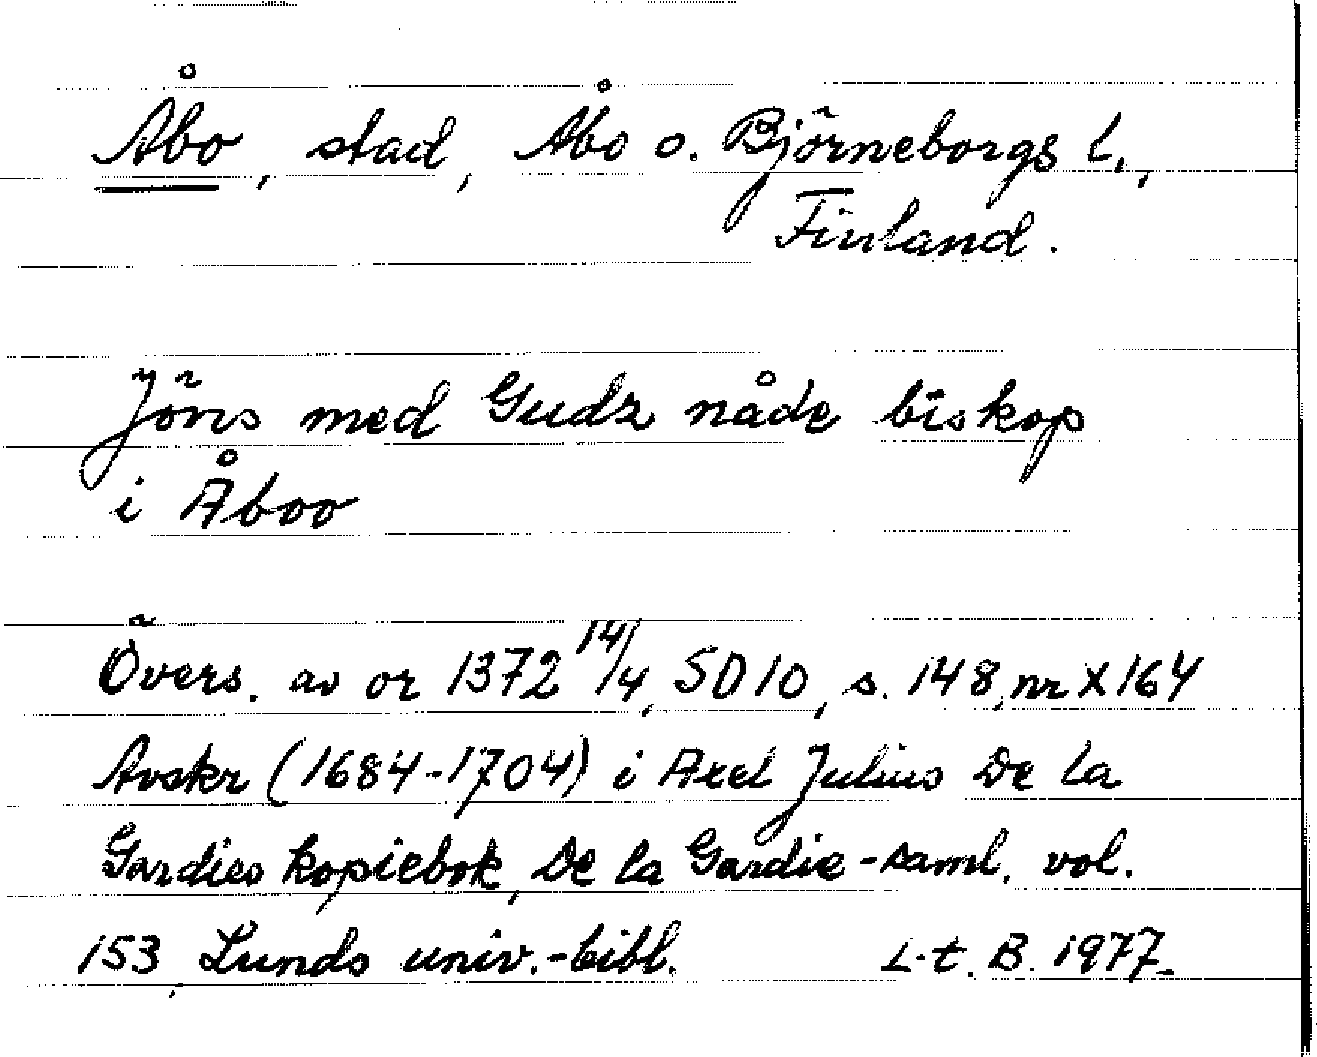 Åbo, stad, Åbo o. Björneborgs l.,
Finland.
Jöns med Gudz nåde biskop
i Åboo
Övers. av or 1372 14/4, SD10, s. 148, nr X164
Avskr (1684-1704) i Axel Julius De la
Gardies kopiebok, De la Gardie-saml. vol.
153, Lunds univ.-bibl. L-t. B. 1977.